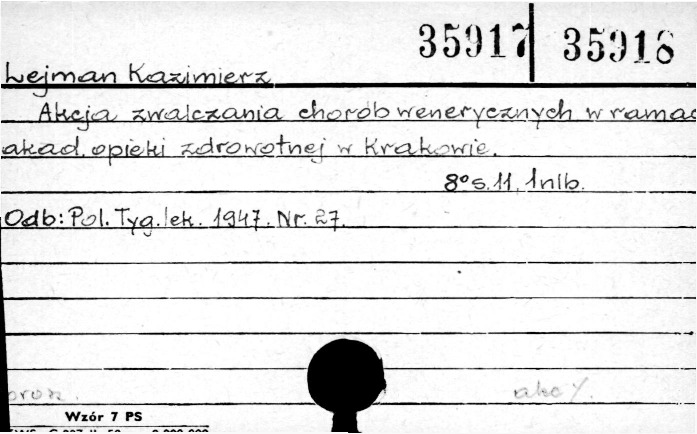 35917 35918
Lejman Kazimierz
Akcja zwalczania chorób wenerycznych w ramac
akad. opieki zdrowotnej w Krakowie.
8° s. 11, 1 nlb.
Odb: Pol. Tyg. lek. 1947. Nr. 27.
Wzór 7 PS